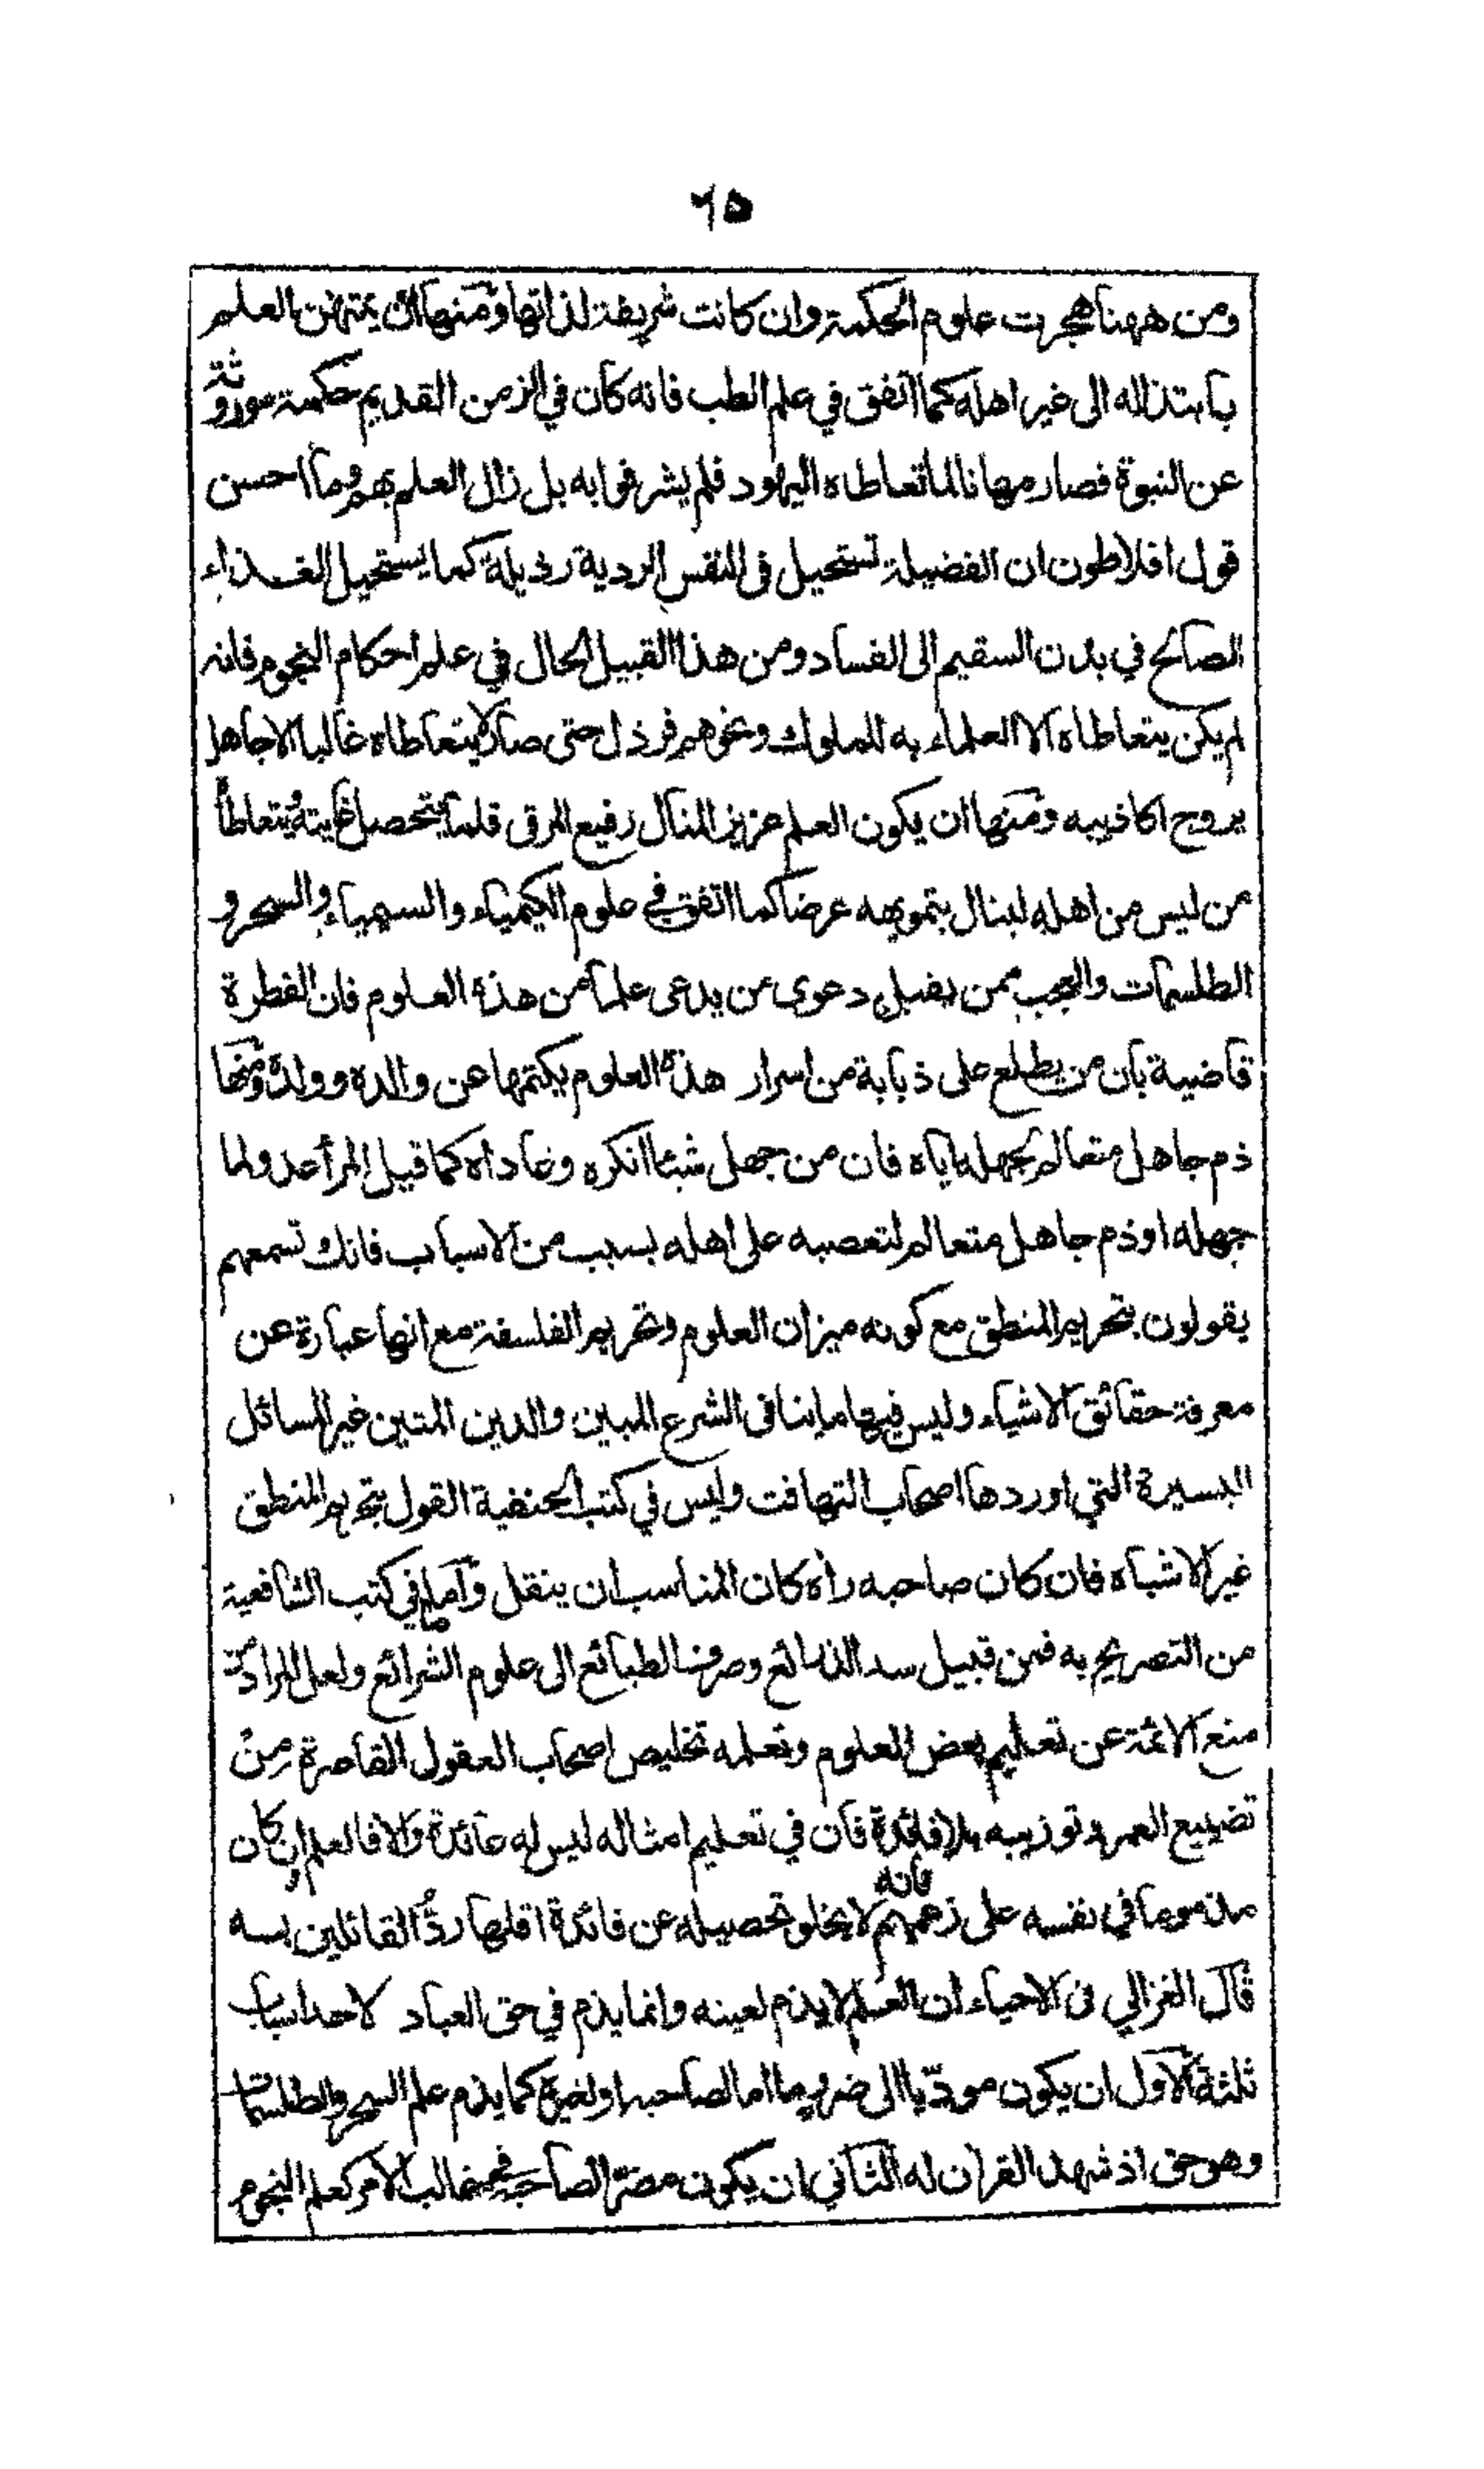 ٦٥
ومن ههنا هجرت علوم الحكمة وان كانت شريفة لذاتها ومنها ان يمتهن العلم
بابتذاله الى غير اهله كما اتفق في علم الطب فانه كان في الزمن القديم حكمة موروثة
عن النبوة فصار مهانا لما تعاطاه اليهود فلم يشرفوا به بل زال العلم بهم وما احسن
قول افلاطون ان الفضيلة تستحيل فى النفس الردية رذيلة كما يستحيل الغذاء
الصالح في بدن السقيم الى الفساد ومن هذا القبيل الحال في علم احكام النجوم فانه
لم يكن يتعاطاه الا العلماء به للملوك ونحوهم فرذل حتى صار لا يتعاطاه غالبا الا جاهل
يروج اكاذيبه ومنها ان يكون العلم عزيز المنال رفيع المرقى قلما يتحصل غايته يتعاطاه
من ليس من اهله لينال بتمويهه عرضا كما اتفق في علوم الكيمياء والسيمياء والسحر و
الطلسمات والعجب ممن يقبل دعوى من يدعى علما من هذه العلوم فان الفطرة
قاضية بان من يطلع على ذبابة من اسرار هذه العلوم يكتمها عن والده وولده ومنها
ذم جاهل متعالم لجهله اياه فان من جهل شيئا انكره وعاداه كما قيل المرأ عدو لما
جهله او ذم جاهل متعالم لتعصبه على اهله بسبب من الاسباب فانك تسمعهم
يقولون بتحريم المنطق مع كونه ميزان العلوم وتحريم الفلسفة مع انها عبارة عن
معرفة حقائق الاشياء وليس فيها ما ينافى الشرع المبين والدين المتين غير المسائل
اليسيرة التي اوردها اصحاب التهافت وليس في كتب الحنفية القول بتحريم المنطق
غير الاشباه فان كان صاحبه رأه كان المناسب ان ينقل واما ما في كتب الشافعية
من التصريح به فمن قبيل سد الذرائع وصرف الطبائع الى علوم الشرائع ولعل المراد من
منع الائمة عن تعليم بعض العلوم وتعلمه تخليص اصحاب العقول القاصرة من
تضييع العمر وتوزيبه بلا فائدة فان في تعليم امثاله ليس له عائدة والا فالعلم ان كان
مذموما في نفسه على زعمهم فانه لا يخلو تحصيله عن فائدة اقلها رد القائلين به
قال الغزالي فى الاحياء ان العلم لا يذم لعينه وانما يذم في حق العباد لاحد اسباب
ثلثة الاول ان يكون مودّيا الى ضرر ما اما لصاحبه او لغيره كما يذم علم السحر والطلسمات
وهو حق اذ شهد القرآن له الثاني ان يكون مضرا لصاحبه في غالب الامر كعلم النجوم